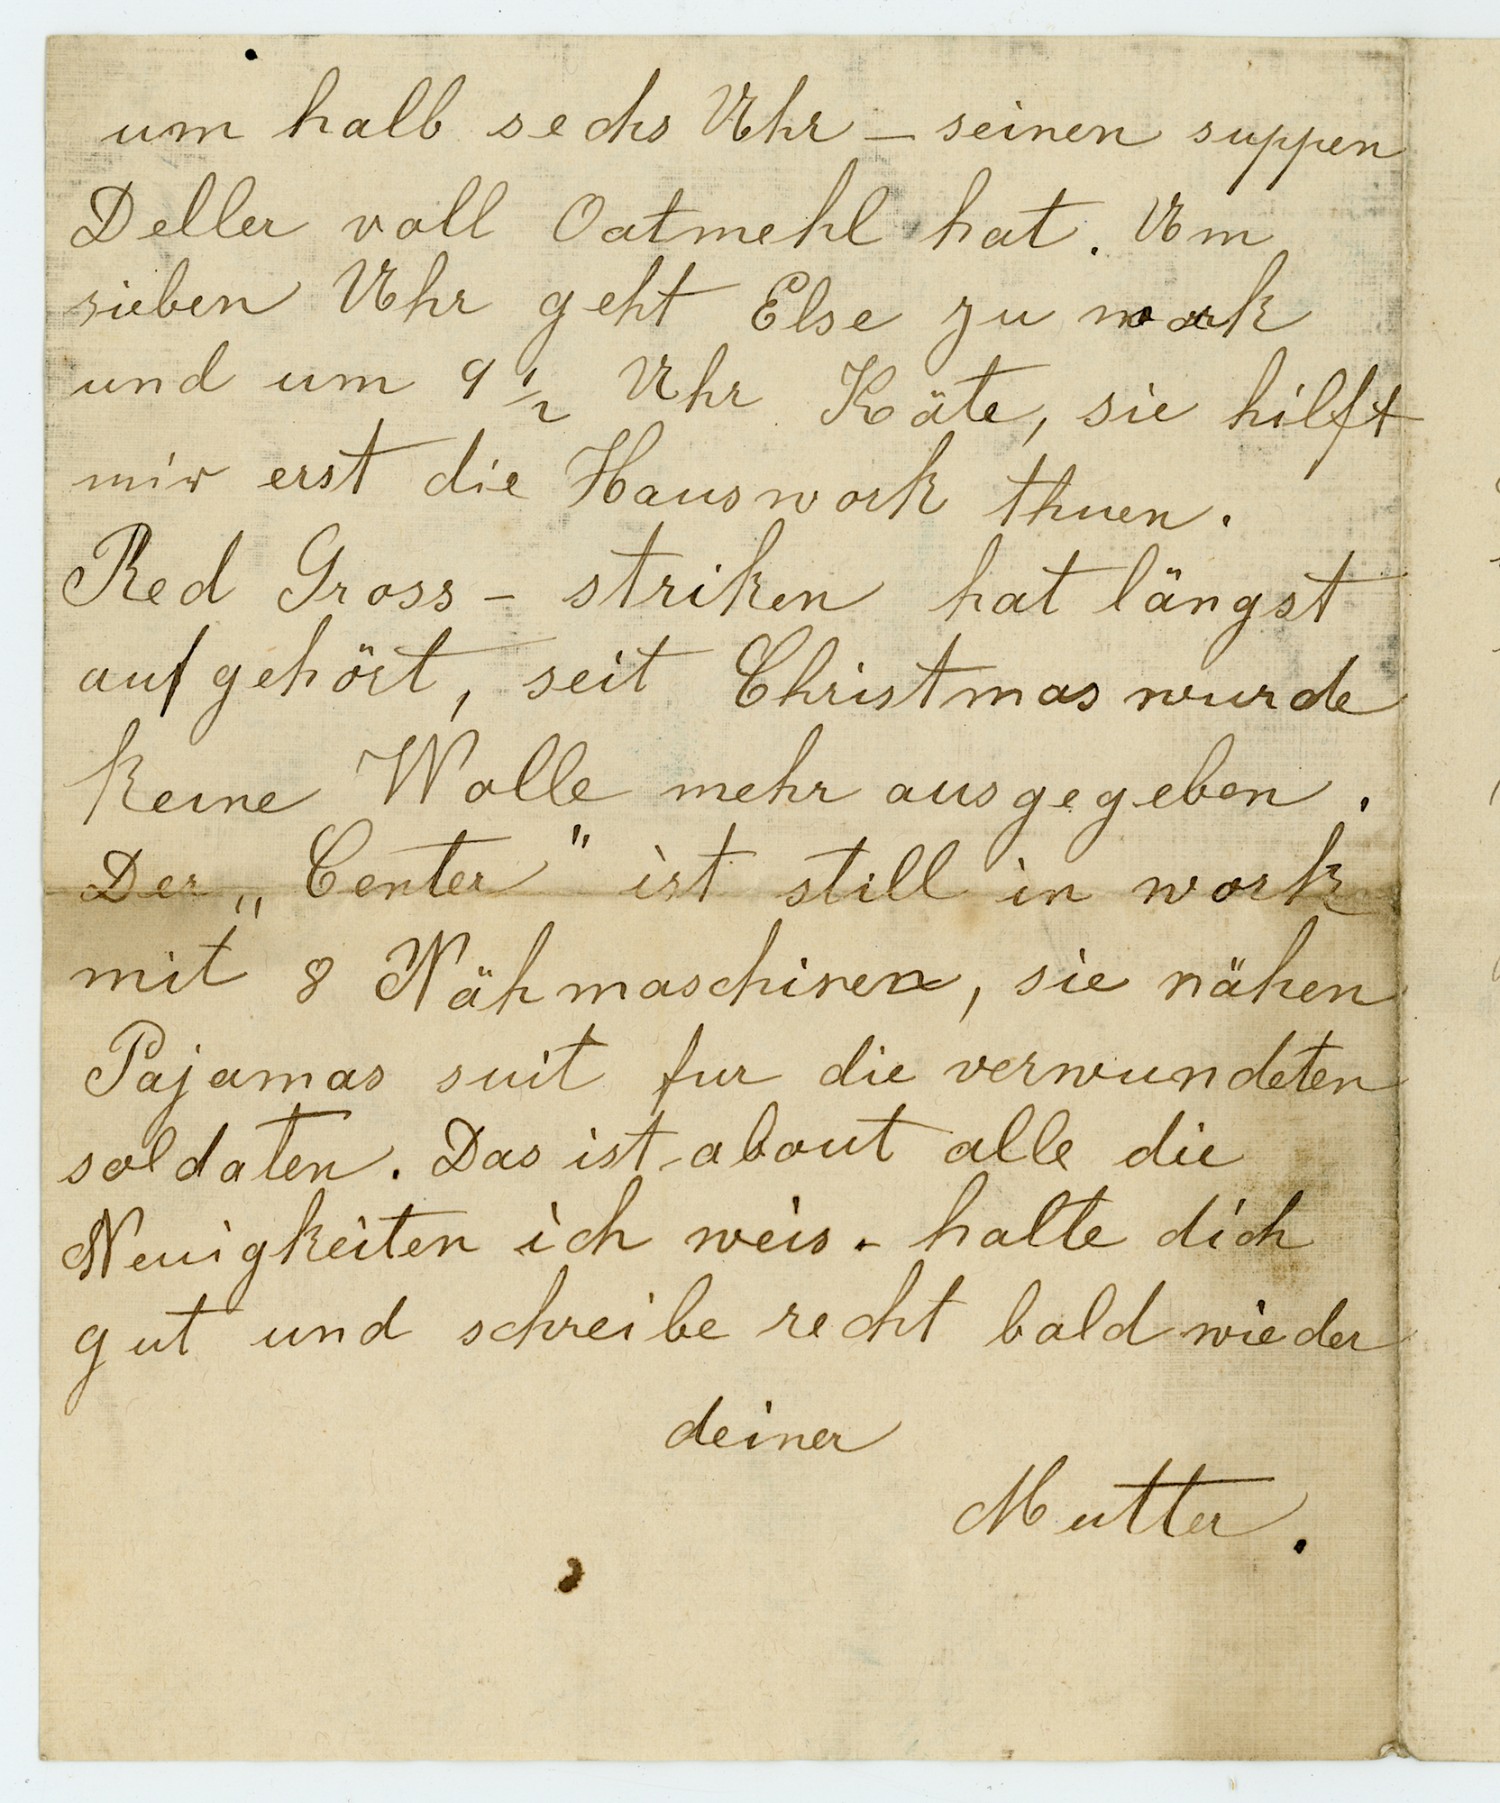 um halb sechs Uhr – seinen suppen
Deller voll Oatmehl hat. Um
sieben Uhr geht Else zu work
und um 9 1/2 Uhr Käte, sie hilft
mir erst die Hauswork thuen.
Red Gross – striken hat längst
aufgehört, seit Christmas wurde
keine Wolle mehr ausgegeben.
Der „Center" ist still in work
mit 8 Nähmaschinen, sie nähen
Pajamas suit fur die verwundeten
soldaten. Das ist about alle die
Neuigkeiten ich weis. halte dich
gut und schreibe recht bald wieder
deiner
Mutter.